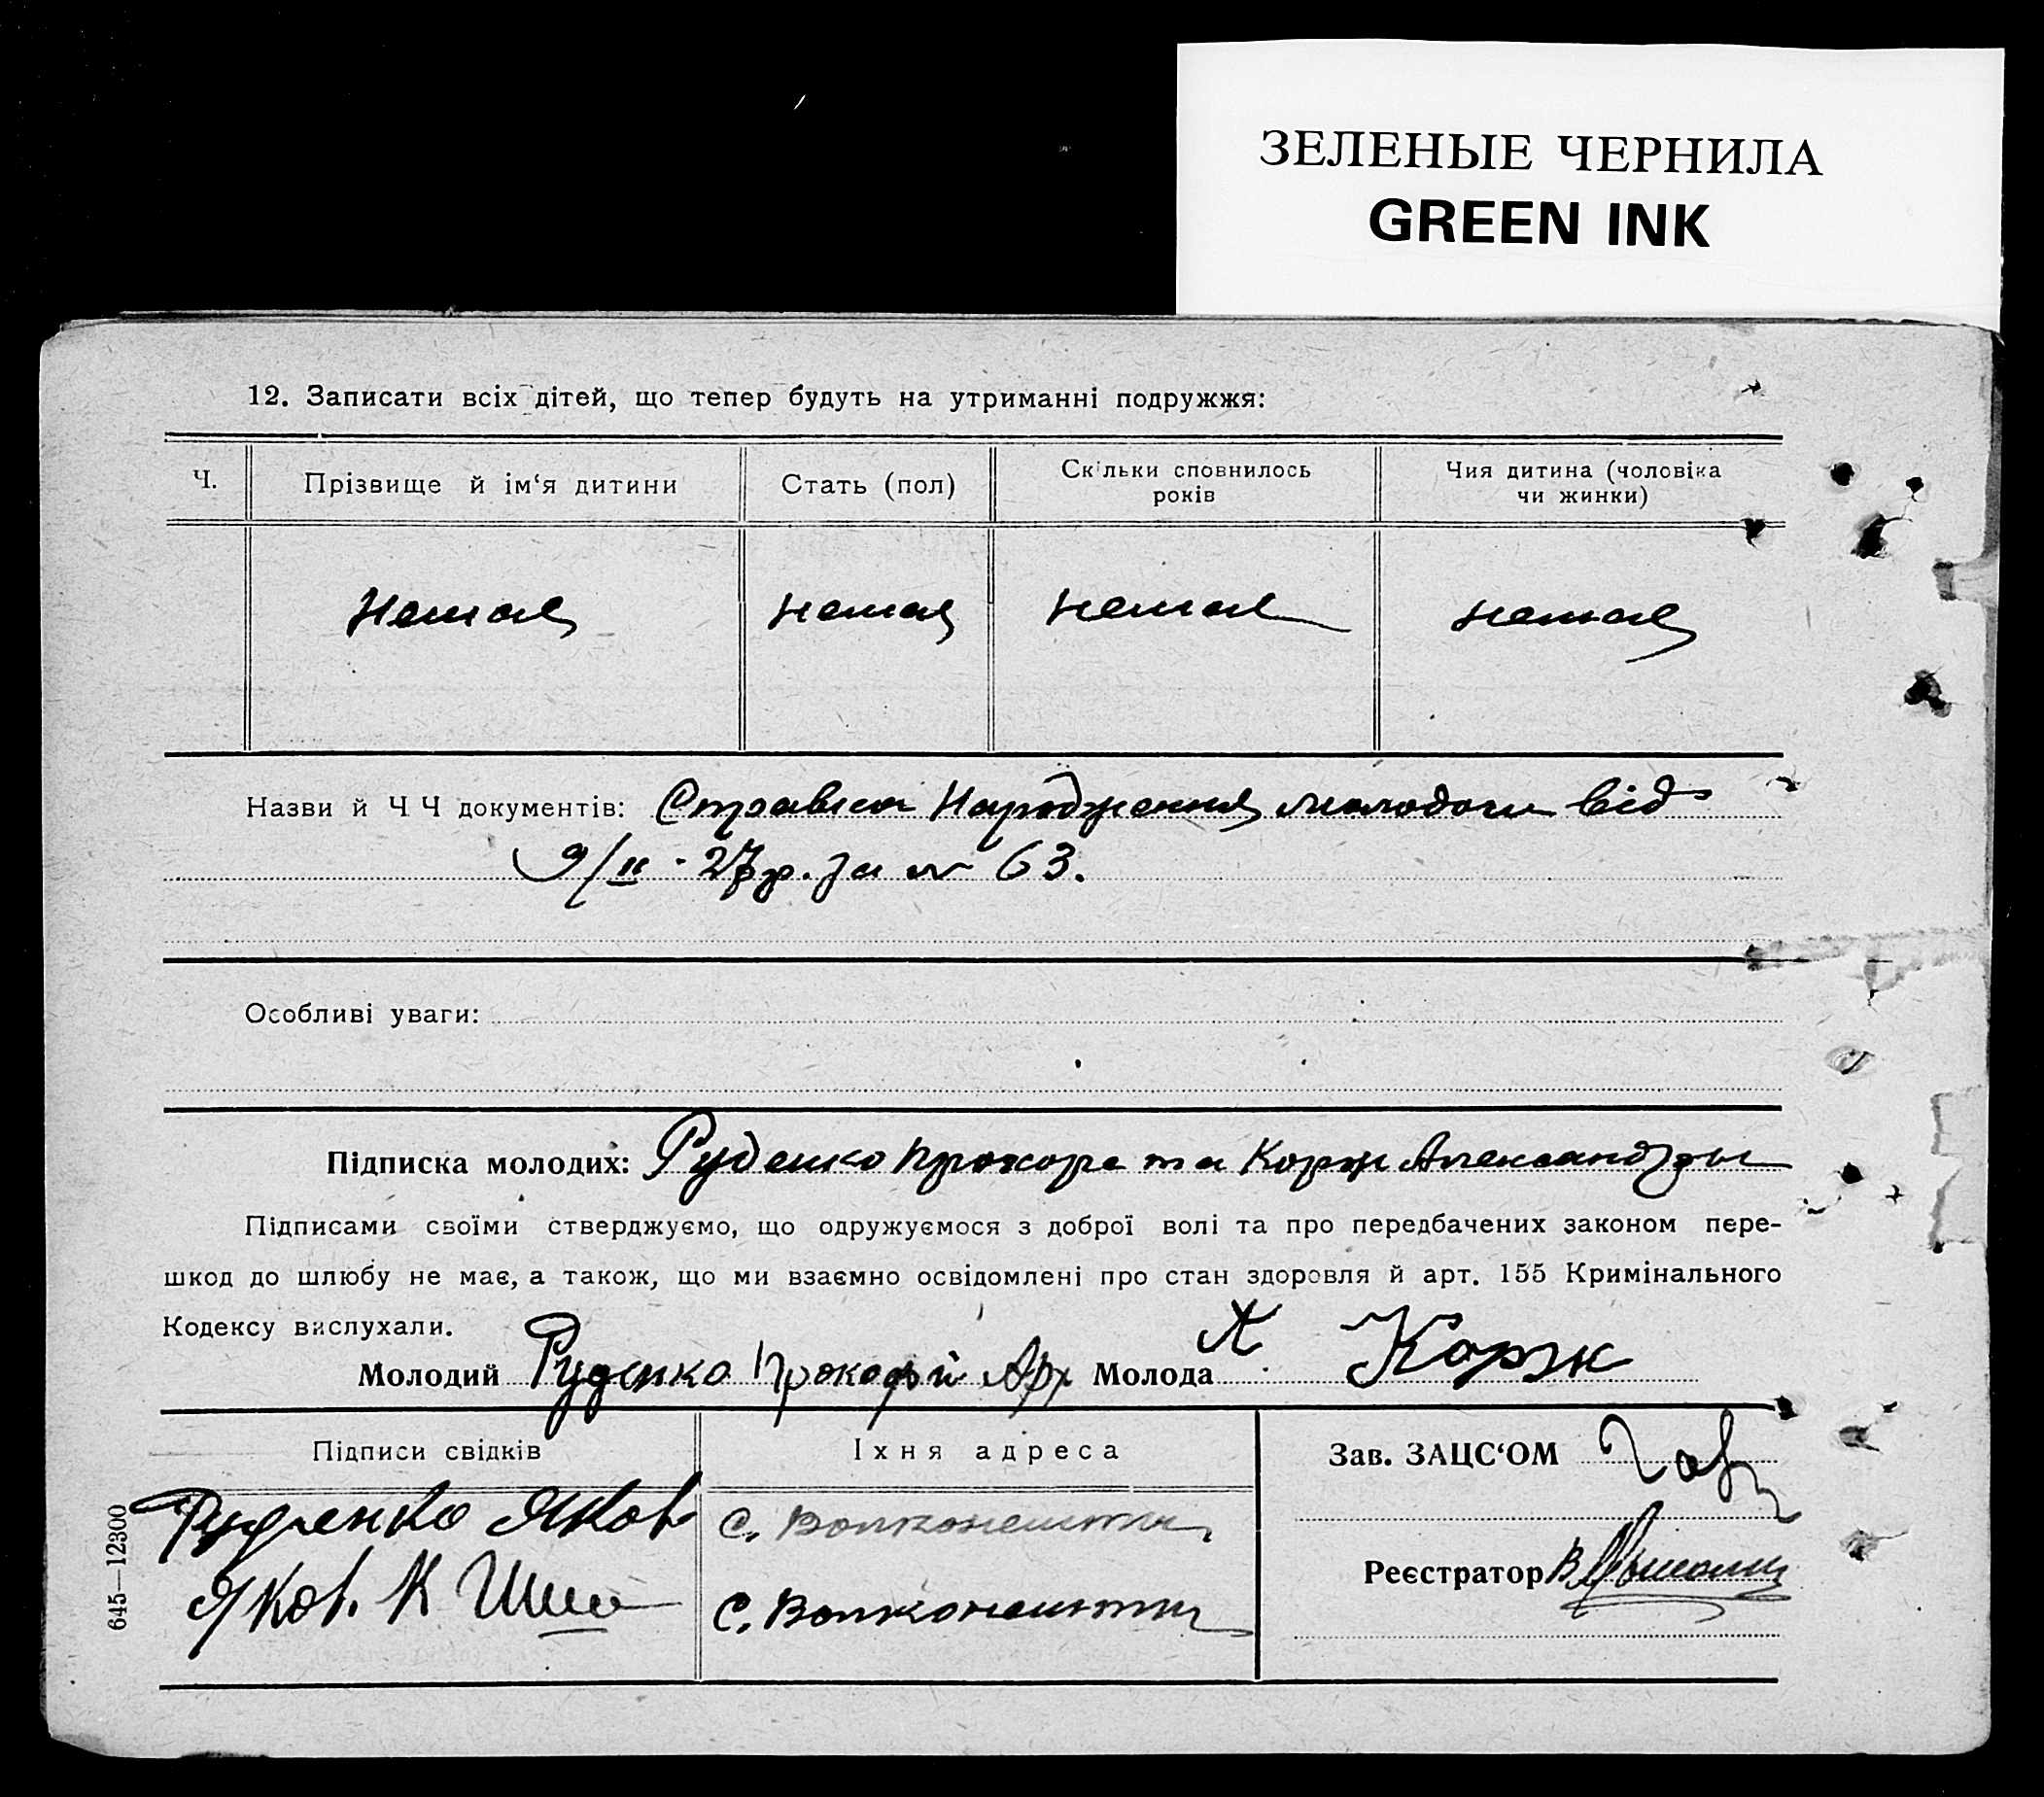 ЗЕЛЕНЫЕ ЧЕРНИЛА
GREEN INK
12. Записати всіх дітей, що тепер будуть на утриманні подружжя:
Ч.
Прізвище й ім‘я дитини
Стать (пол)
Скільки сповнилось
років
Чия дитина (чоловіка
чи жинки)
Немає немає немає немає
Назви й Ч Ч документів: Справка Народження молодоги від
9/II - 27 р. за № 63.
Особливі уваги:
Підписка молодих: Руденко Прохора та Корж Александры
Підписами своїми стверджуємо, що одружуємося з доброї волі та про передбачених законом пере-
шкод до шлюбу не має, а також, що ми взаємно освідомлені про стан здоровля й арт. 155 Кримінального
Кодексу вислухали.
Молодий Руденко Прокофій Арх Молода А Корж
Підписи свідків
Іхня адреса
Зав. ЗАЦС‘ОМ
Руденко Яков с.
Реєстратор В
Яков. К с.
645—12300